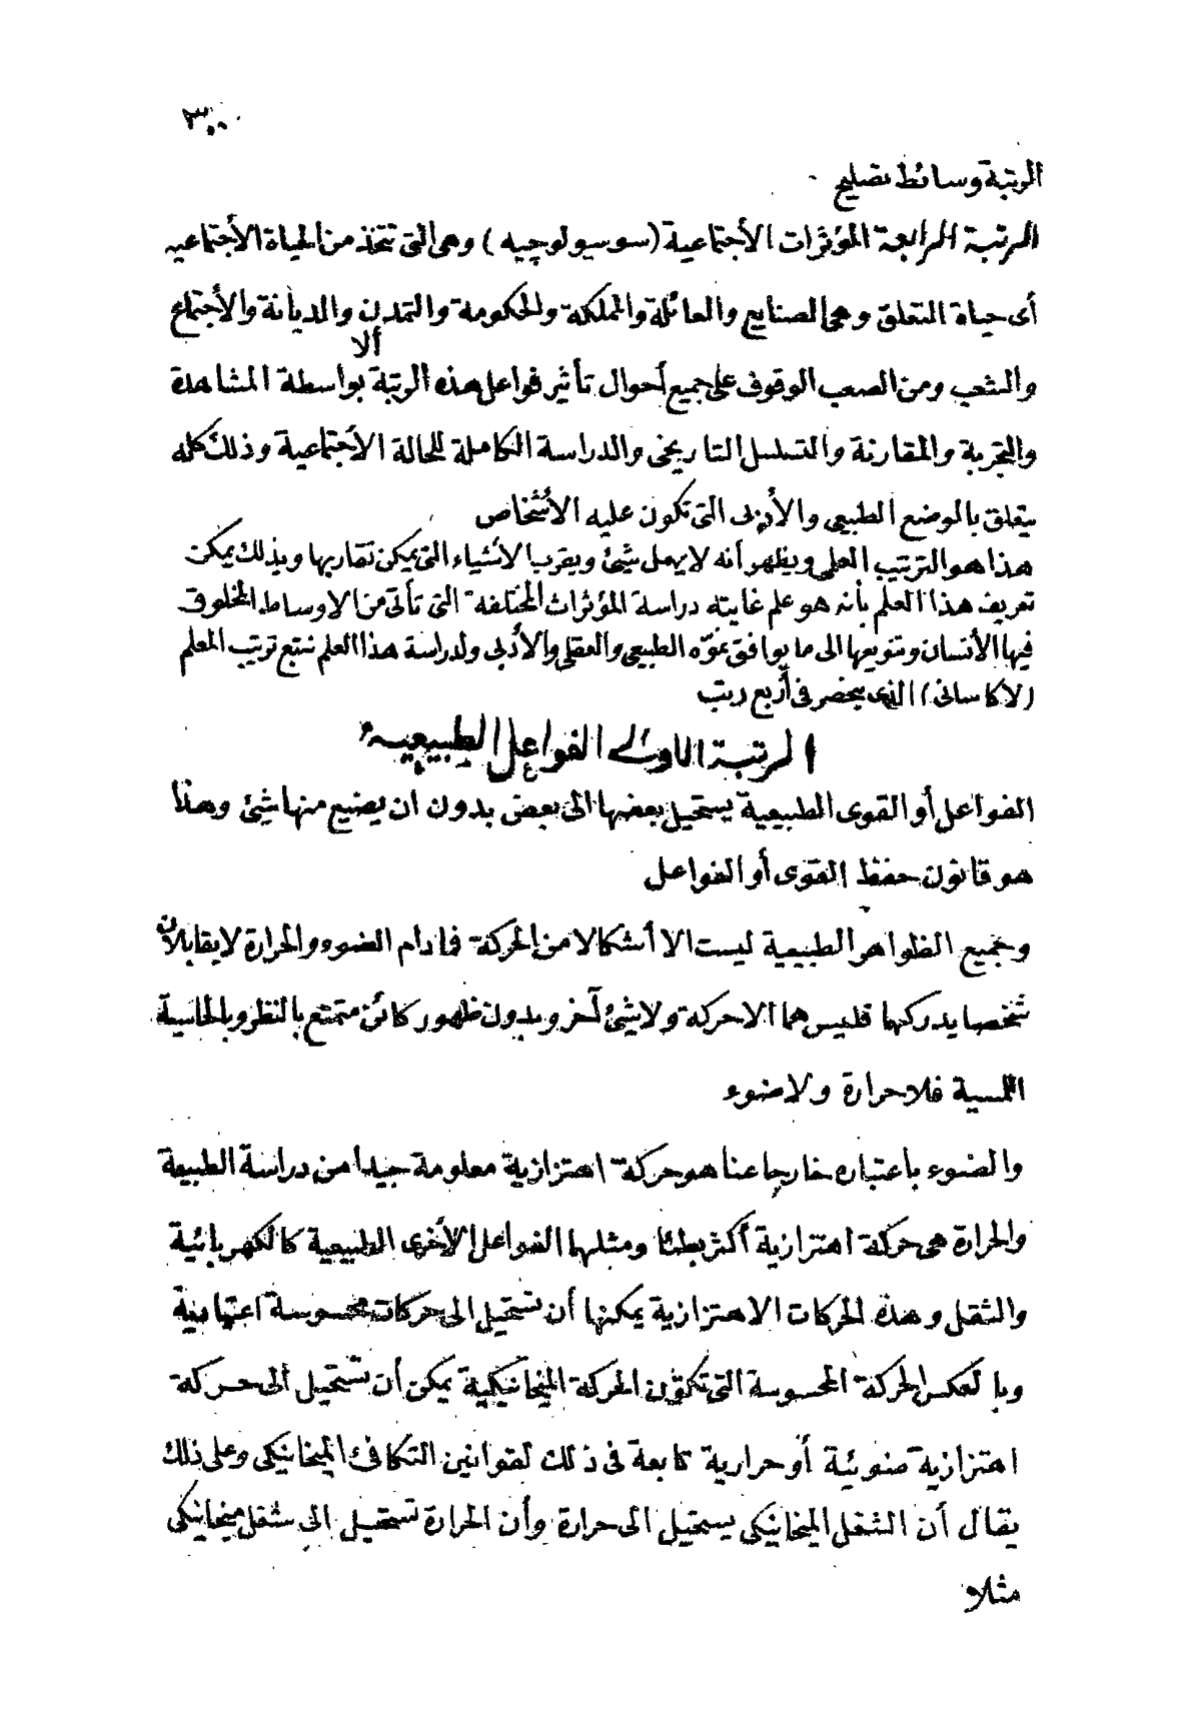 ٣٠٠
الرتبة وسائط تصليح
المرتبة الرابعة المؤثرات الأجتماعية (سوسيولوچيه) وهى التى تتخذ من الحياة الأجتماعيه
أى حياة التعلق وهى الصنايع والعائلة والمملكة والحكومة والتمدن والديانة والأجتماع
ألا
والشعب ومن الصعب الوقوف على جميع أحوال تأثير فواعل هذه الرتبة بواسطة المشاهدة
والتجربة والمقارنة والتسلسل التاريخى والدراسة الكاملة للحالة الأجتماعية وذلك كله
يتعلق بالوضع الطبيعى والأدبى التى تكون عليه الأشخاص
هذا هو الترتيب العلمى ويظهر أنه لا يهمل شيئ ويقرب الأشياء التى يمكن تقاربها وبذلك يمكن
تعريف هذا العلم بأنه هو علم غايته دراسة المؤثرات المختلفة التى تأتى من الاوساط المخلوق
فيها الأنسان وتنويعها الى ما يوافق نموّه الطبيعى والعقلى والأدبى ولدراسة هذا العلم نتبع ترتيب المعلم
(لاكاسانى) الذى ينحصر فى أربع رتب
المرتبة الاولى الفواعل الطبيعيه
الفواعل أو القوى الطبيعية يستحيل بعضها الى بعض بدون ان يضيع منها شيئ وهذا
هو قانون حفظ القوى أو الفواعل
وجميع الظواهر الطبيعية ليست الا أشكالا من الحركة فمادام الضوء والحرارة لا يقابلان
شخصا يدركها فليس هما الا حركة ولا شيئ آخر وبدون ظهور كائن متمتع بالنظر وبالحاسية
اللمسية فلا حرارة ولا ضوء
والضوء باعتباره خارجا عنا هو حركة اهتزازية معلومة جيدا من دراسة الطبيعة
والحرارة هى حركة اهتزازية أكثر بطئا ومثلها الفواعل الأخرى الطبيعية كالكهربائية
والثقل وهذه الحركات الاهتزازية يمكنها أن تستحيل الى حركات محسوسة اعتيادية
وبالعكس الحركة المحسوسة التى تكوّن الحركة الميخانيكية يمكن أن تستحيل الى حركة
اهتزازية ضوئية أو حرارية تابعة فى ذلك لقوانين التكافئ الميخانيكى وعلى ذلك
يقال أن الشغل الميخانيكى يستحيل الى حرارة وأن الحرارة تستحيل الى شغل ميخانيكى
مثلا